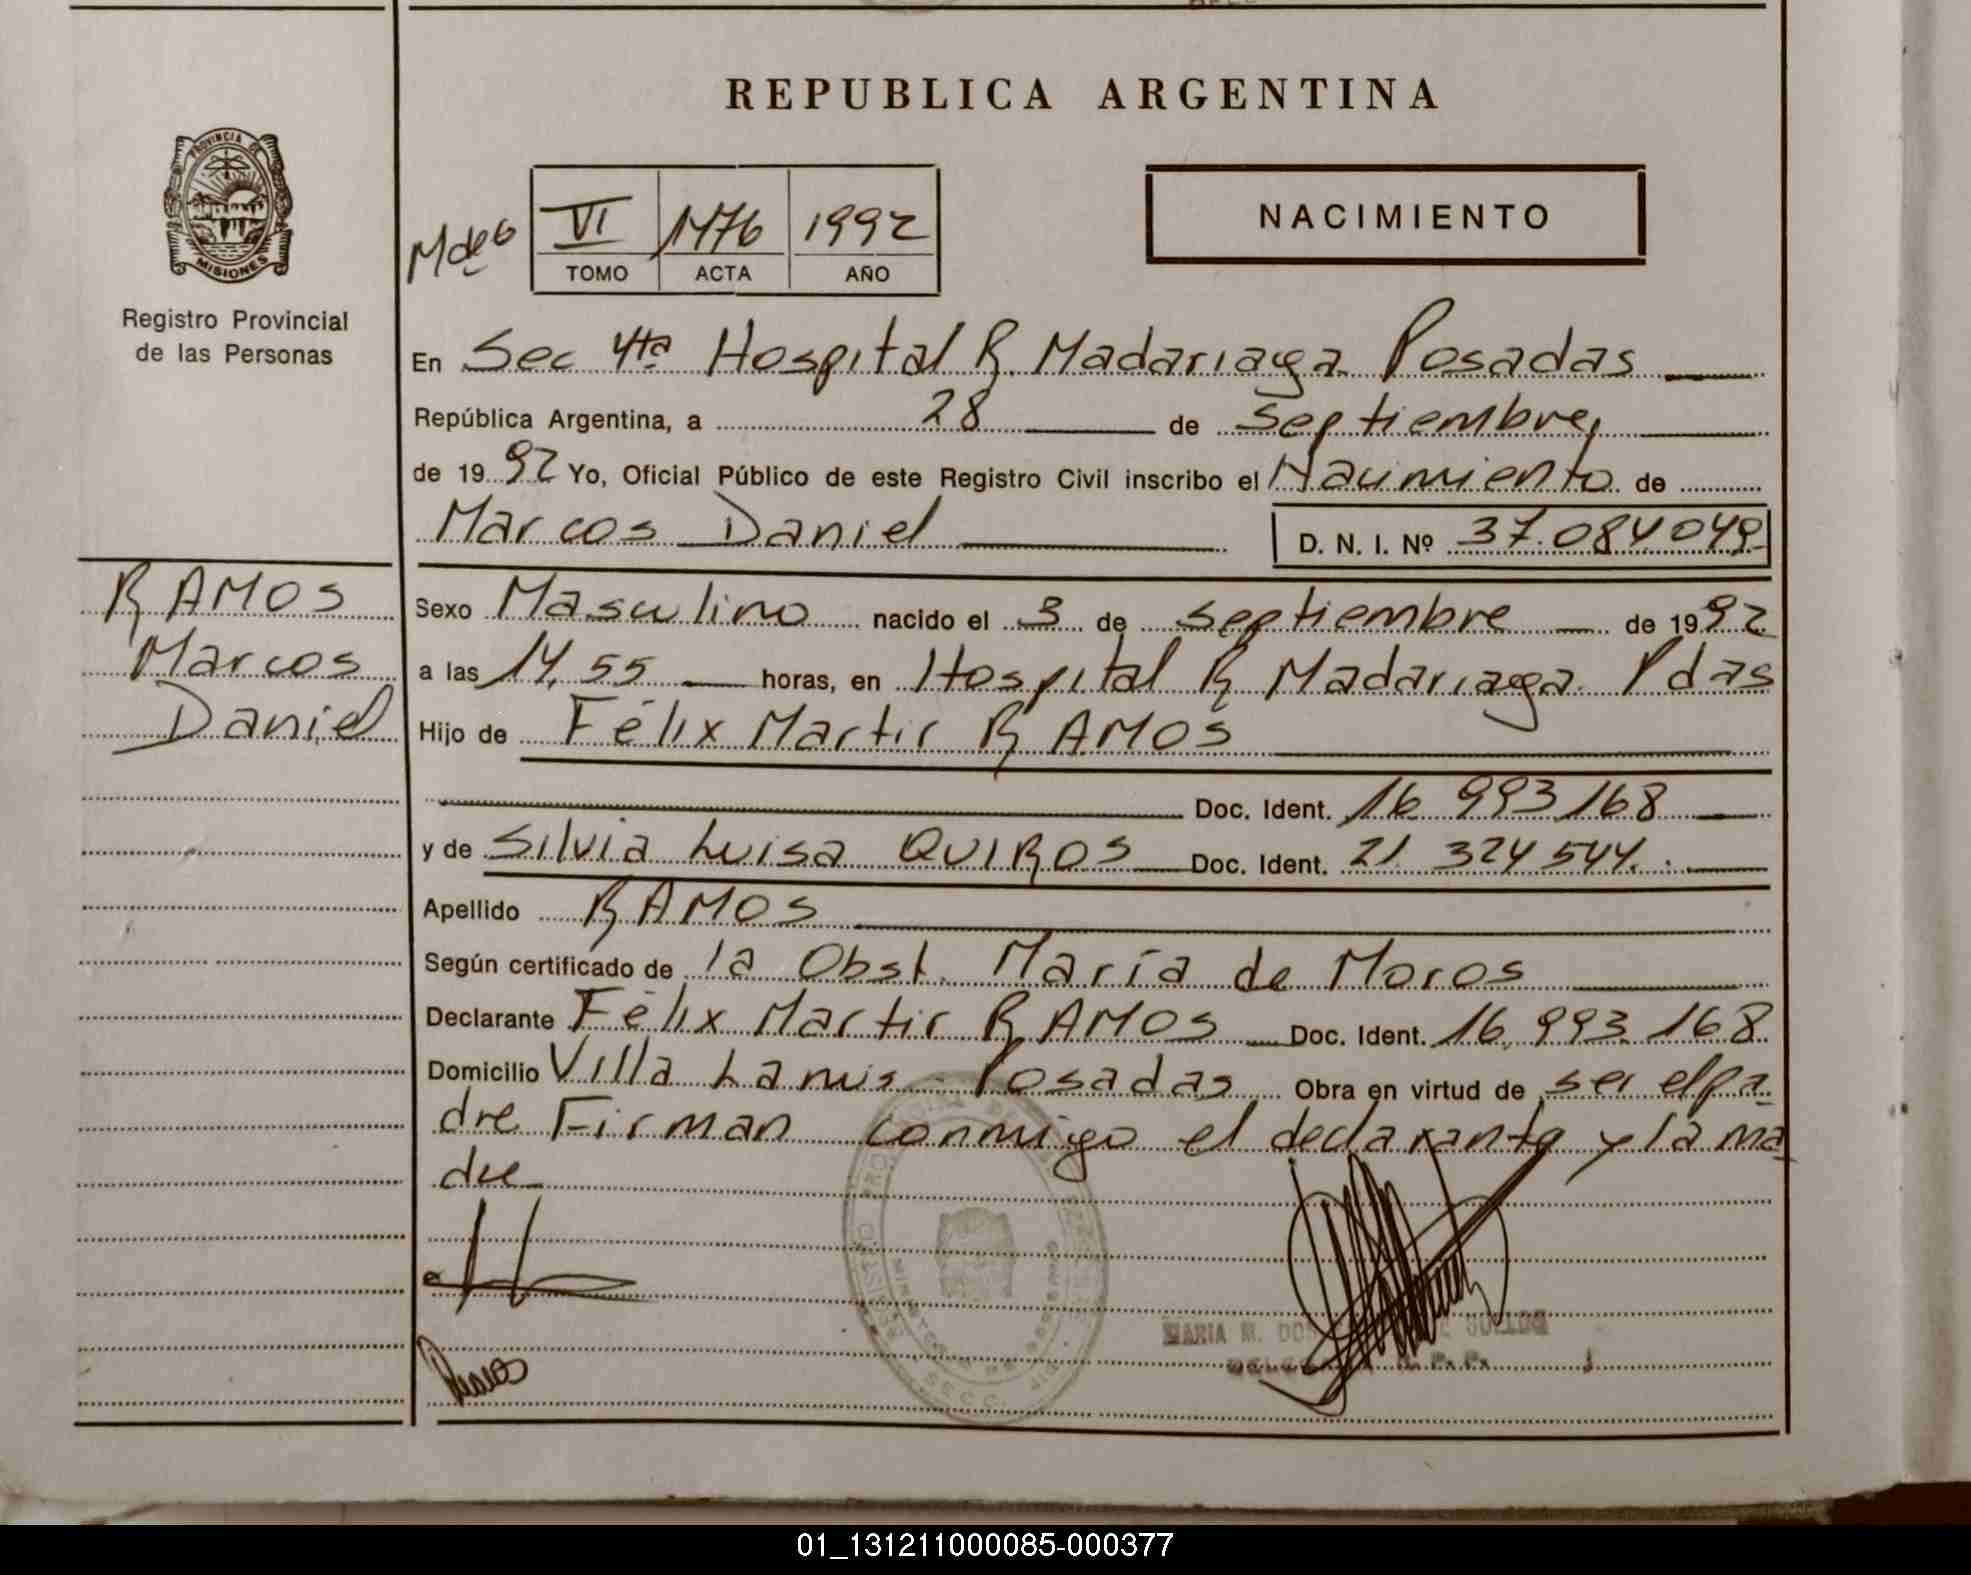 REPUBLICA ARGENTINA
PROVINCIA DE
MISIONES
Registro Provincial
de las Personas
VI 1476 1992
TOMO ACTA AÑO
NACIMIENTO
En Sec 4ta Hospital R. Madariaga Posadas
República Argentina, a 28 de Septiembre,
de 1992 Yo, Oficial Público de este Registro Civil inscribo el Nacimiento de
Marcos Daniel D. N. I. Nº 37.084 049
RAMOS
Marcos
Daniel
Sexo Masculino nacido el 3 de Septiembre de 1992
a las 14,55 horas, en Hospital R Madariaga Pdas
Hijo de Félix Martir RAMOS
Doc. Ident. 16 993 168
y de Silvia Luisa QUIROS Doc. Ident. 21 324 544.
Apellido RAMOS
Según certificado de la Obst. María de Moros
Declarante Félix Martir RAMOS Doc. Ident. 16.993.168
Domicilio Villa Lanus - Posadas Obra en virtud de ser el pa
dre Firman conmigo el declarante y la ma
dre
MARIA M.
01_131211000085-000377